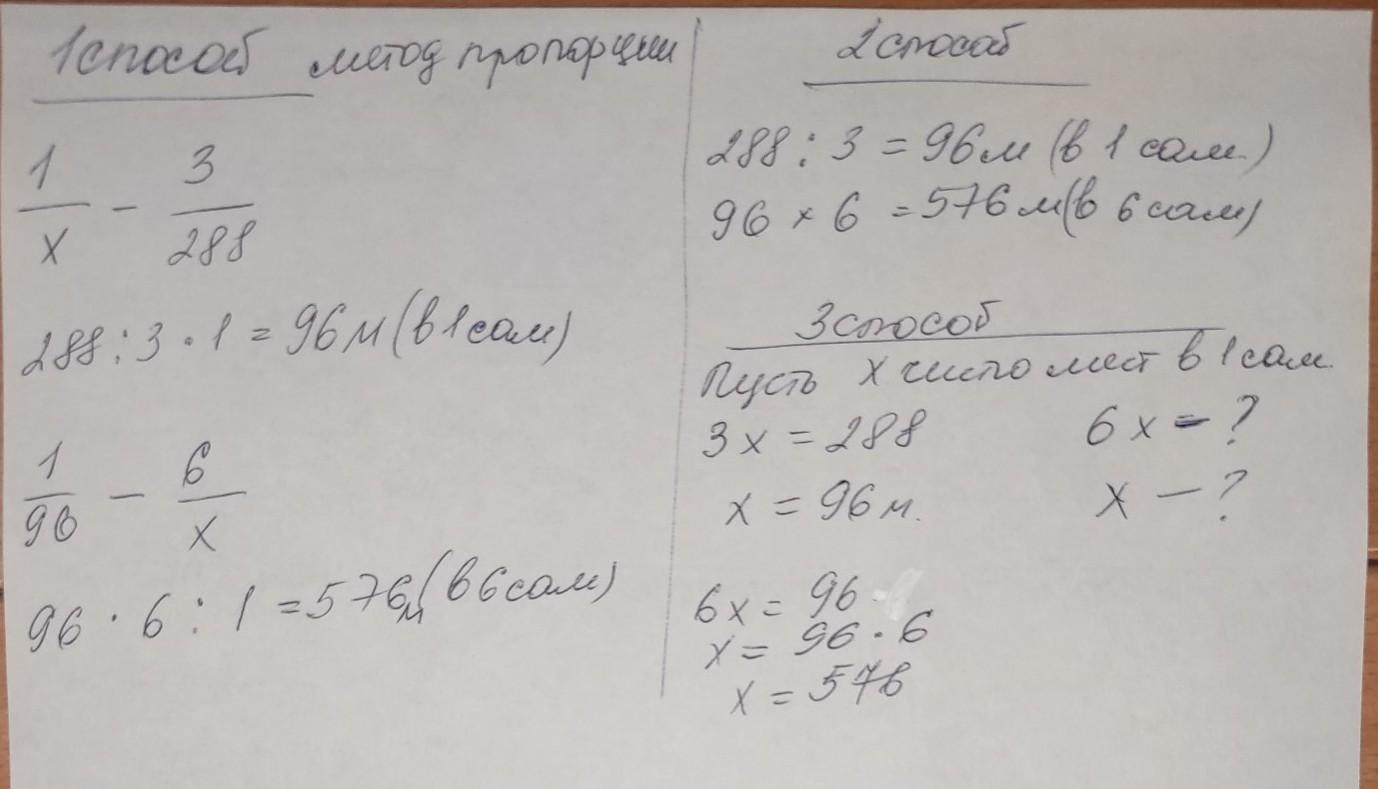 1 способ метод пропорции
1/x - 3/288
288 : 3 · 1 = 96 м (в 1 сам)
1/96 - 6/x
96 · 6 : 1 = 576 м (в 6 сам)
2 способ
288 : 3 = 96 м (в 1 сам.)
96 × 6 = 576 м (в 6 сам)
3 способ
Пусть x число мест в 1 сам.
3x = 288 6x - ?
x = 96 м. x - ?
6x = 96 ·
x = 96 · 6
x = 576